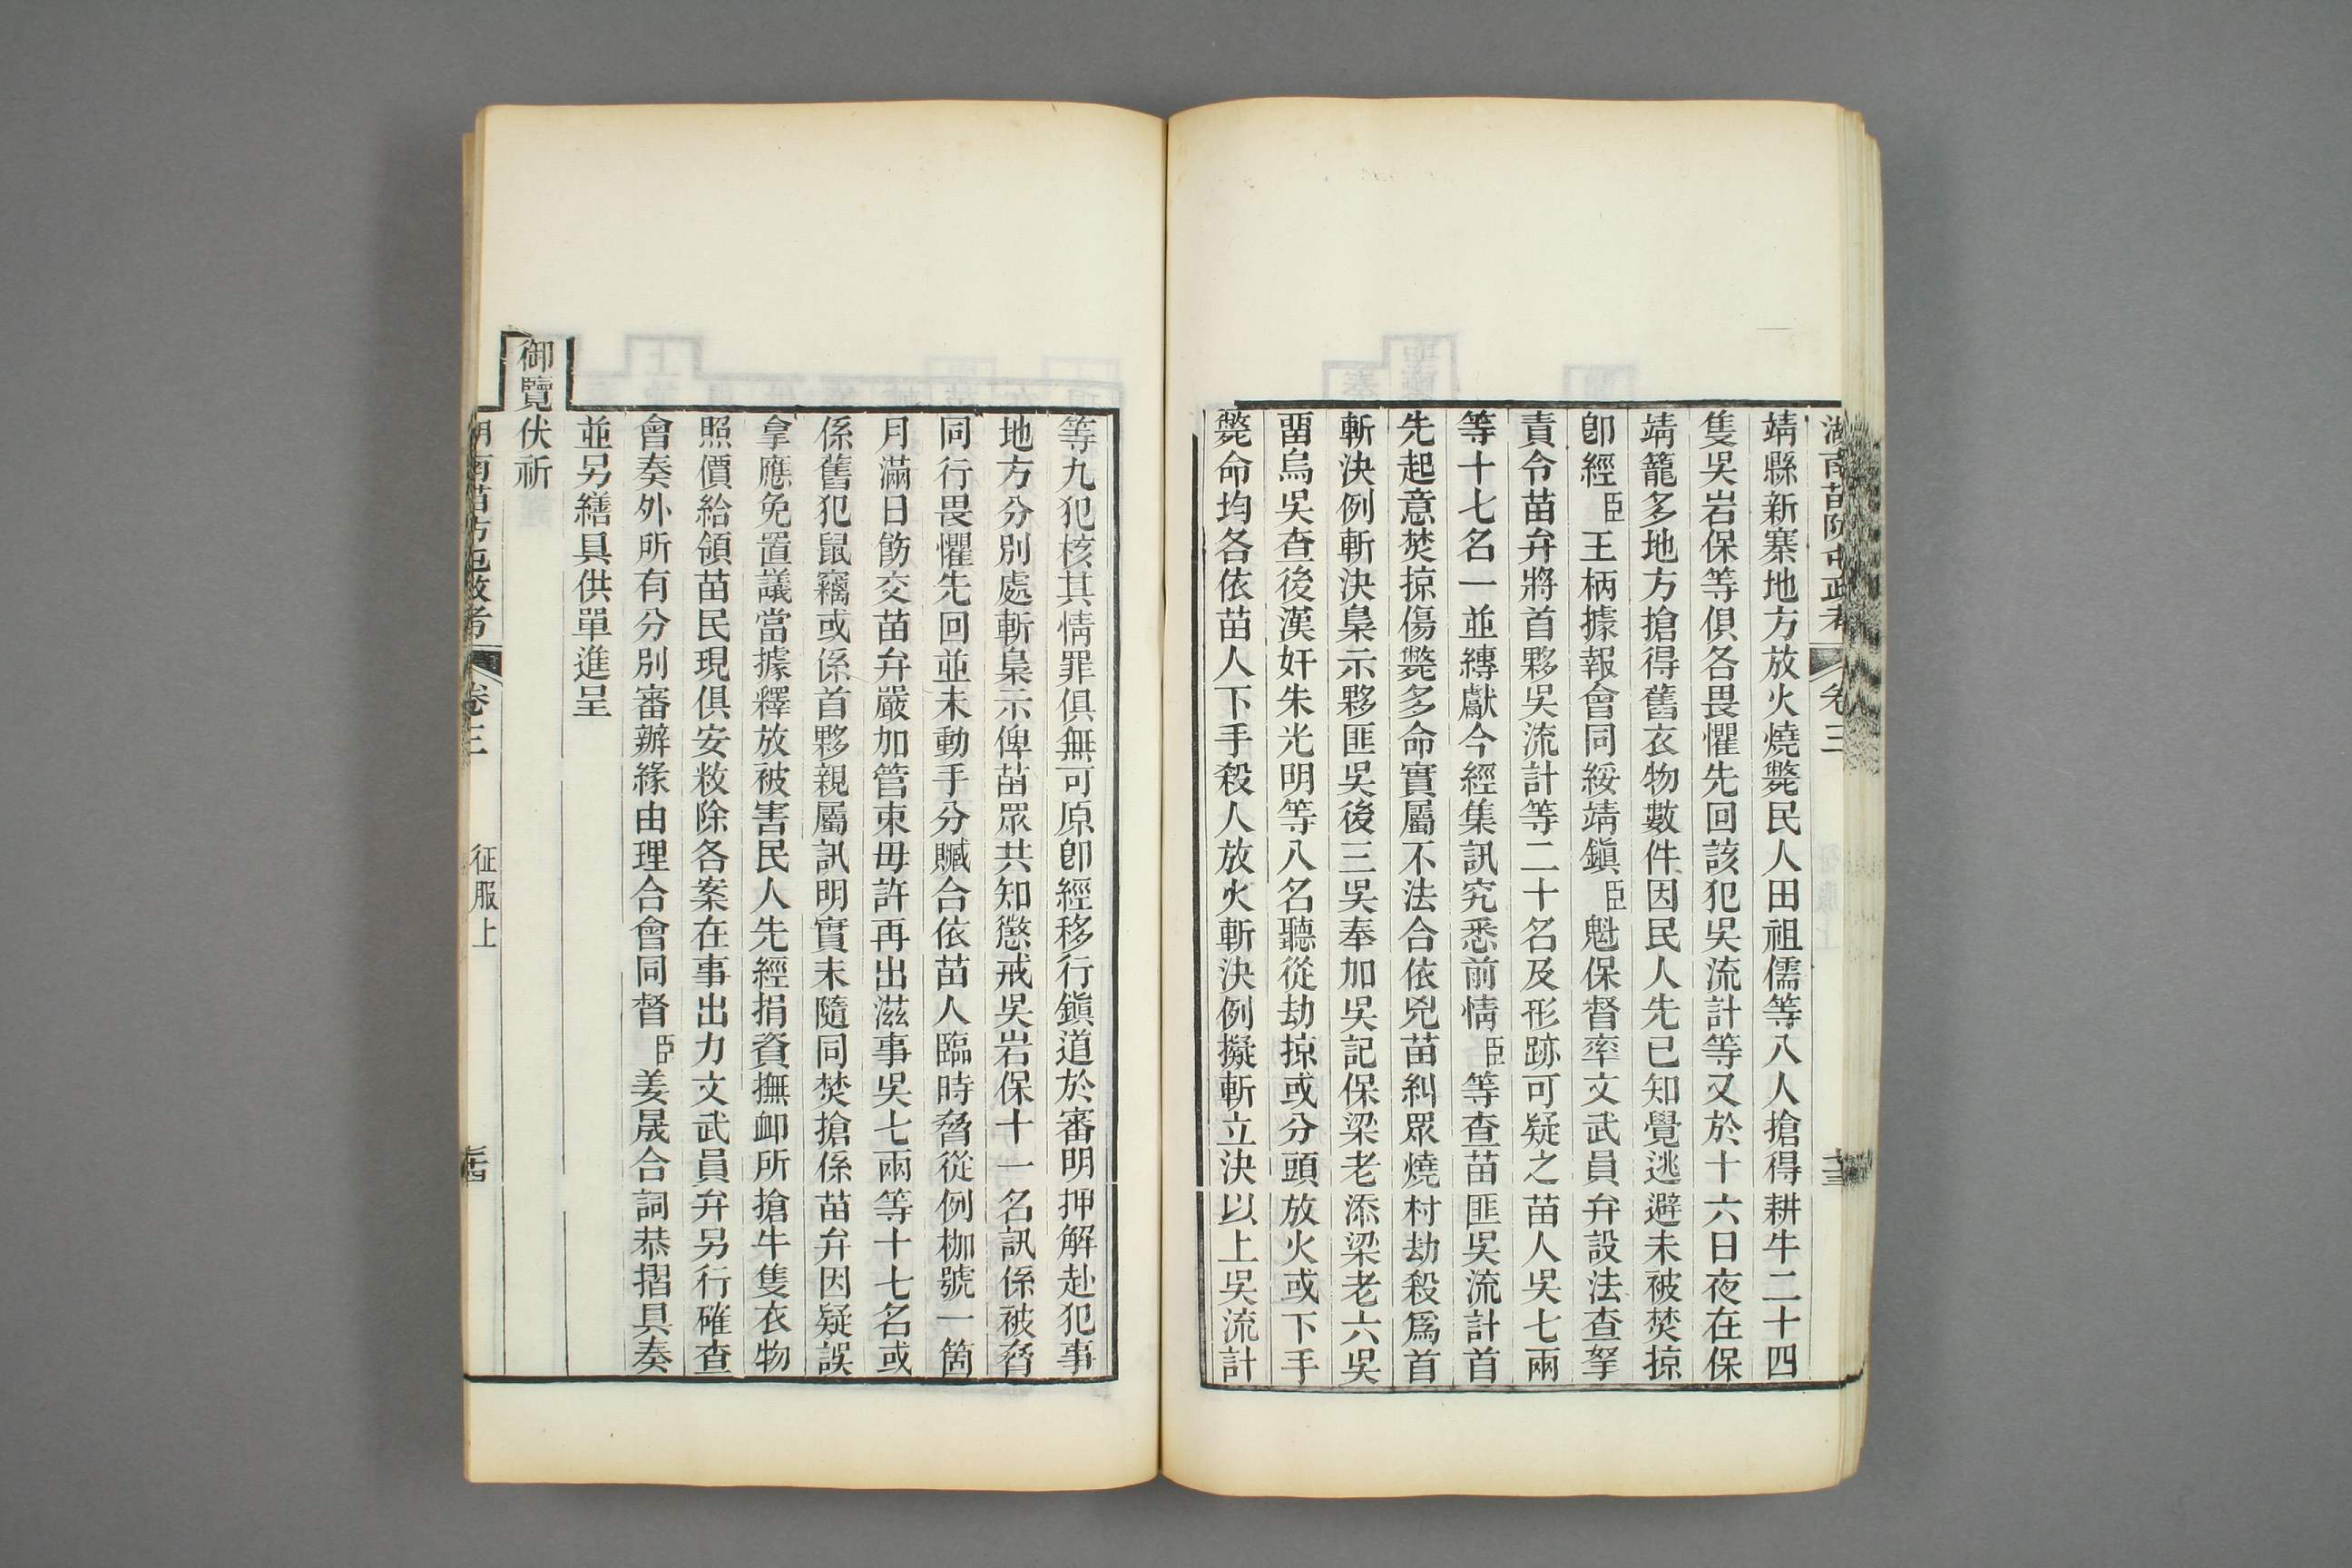 湖南苗防屯政考 卷三
靖縣新寨地方放火燒斃民人田祖儒等八人搶得耕牛二十四
隻吳岩保等俱各畏懼先回該犯吳流計等又於十六日夜在保
靖籠多地方搶得舊衣物數件因民人先已知覺逃避未被焚掠
卽經臣王柄據報會同綏靖鎭臣魁保督率文武員弁設法查拏
責令苗弁將首夥吳流計等二十名及形跡可疑之苗人吳七兩
等十七名一並縳獻今經集訊究悉前情臣等查苗匪吳流計首
先起意焚掠傷斃多命實屬不法合依兇苗糾眾燒村劫殺爲首
斬決例斬決梟示夥匪吳後三吳奉加吳記保梁老添梁老六吳
畱烏吳查後漢奸朱光明等八名聽從劫掠或分頭放火或下手
斃命均各依苗人下手殺人放火斬決例擬斬立決以上吳流計
等九犯核其情罪俱無可原卽經移行鎭道於審明押解赴犯事
地方分別處斬梟示俾苗眾共知懲戒吳岩保十一名訊係被脅
同行畏懼先回並未動手分贓合依苗人臨時脅從例枷號一箇
月滿日飭交苗弁嚴加管束毋許再出滋事吳七兩等十七名或
係舊犯鼠竊或係首夥親屬訊明實未隨同焚搶係苗弁因疑誤
拿應免置議當據釋放被害民人先經捐資撫卹所搶牛隻衣物
照價給領苗民現俱安敉除各案在事出力文武員弁另行確查
會奏外所有分別審辦緣由理合會同督臣姜晟合詞恭摺具奏
並另繕具供單進呈
御覽伏祈
湖南苗防屯政考 卷三 征服上